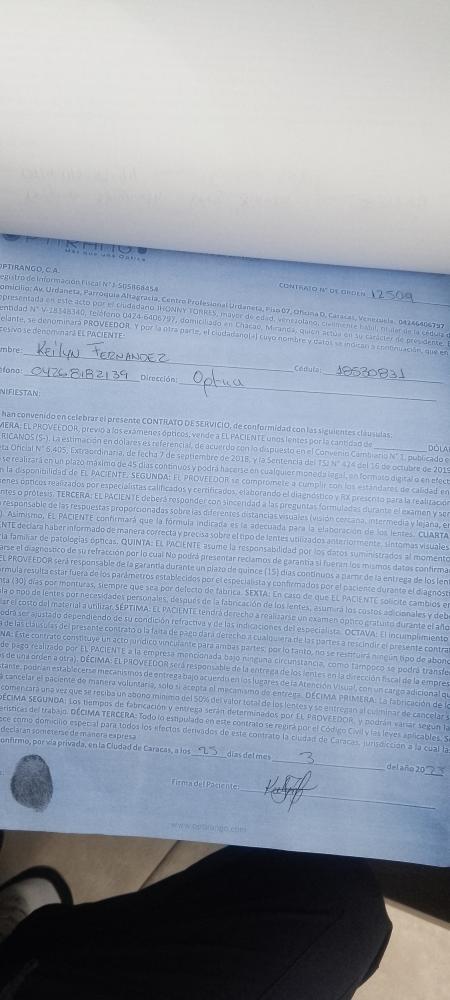 OPTIRANGO
Más que una Óptica
CONTRATO N° DE ORDEN 12509
OPTIRANGO, C.A.
egistro de Información Fiscal N° J-505868454
omicilio: Av. Urdaneta, Parroquia Altagracia, Centro Profesional Urdaneta, Piso 07, Oficina D, Caracas, Venezuela. 04246406797
epresentada en este acto por el ciudadano JHONNY TORRES, mayor de edad, venezolano, civilmente hábil, titular de la cédula d
entidad N° V-18348340, teléfono 0424-6406797, domiciliado en Chacao, Miranda, quien actúa en su carácter de presidente. E
elante, se denominará PROVEEDOR. Y por la otra parte, el ciudadano(a) cuyo nombre y datos se indican a continuación, que en
cesivo se denominará EL PACIENTE:
mbre: Keilyn FERNANDEZ Cédula: 18530831
éfono: 04268182139 Dirección:
NIFIESTAN:
han convenido en celebrar el presente CONTRATO DE SERVICIO, de conformidad con las siguientes cláusulas:
MERA: EL PROVEEDOR, previo a los exámenes ópticos, vende a EL PACIENTE unos lentes por la cantidad de DÓLAR
RICANOS ($-). La estimación en dólares es referencial, de acuerdo con lo dispuesto en el Convenio Cambiario N° 1, publicado
eta Oficial N° 6.405, Extraordinaria, de fecha 7 de septiembre de 2018, y la Sentencia del TSJ N° 424 del 16 de octubre de 2019
se realizará en un plazo máximo de 45 días continuos y podrá hacerse en cualquier moneda legal, en formato digital o en efect
n la disponibilidad de EL PACIENTE. SEGUNDA: EL PROVEEDOR se compromete a cumplir con los estándares de calidad en
menes ópticos realizados por especialistas calificados y certificados, elaborando el diagnóstico y RX prescrito para la realización
ntes o prótesis. TERCERA: EL PACIENTE deberá responder con sinceridad a las preguntas formuladas durante el examen y ser
responsable de las respuestas proporcionadas sobre las diferentes distancias visuales (visión cercana, intermedia y lejana, en
). Asimismo, EL PACIENTE confirmará que la fórmula indicada es la adecuada para la elaboración de los lentes. CUARTA
ENTE declara haber informado de manera correcta y precisa sobre el tipo de lentes utilizados anteriormente, síntomas visuales
ia familiar de patologías ópticas. QUINTA: EL PACIENTE asume la responsabilidad por los datos suministrados al momento
arse el diagnóstico de su refracción por lo cual No podrá presentar reclamos de garantía si fueran los mismos datos confirma
EL PROVEEDOR será responsable de la garantía durante un plazo de quince (15) días continuos a partir de la entrega de los len
órmula resulta estar fuera de los parámetros establecidos por el especialista y confirmados por el paciente durante el diagnóst
nta (30) días por monturas, siempre que sea por defecto de fábrica. SEXTA: En caso de que EL PACIENTE solicite cambios en
la o tipo de lentes por necesidades personales, después de la fabricación de los lentes, asumirá los costos adicionales y debe
lar el costo del material a utilizar. SÉPTIMA: EL PACIENTE tendrá derecho a realizarse un examen óptico gratuito durante el
odrá ser ajustado dependiendo de su condición refractiva y de las indicaciones del especialista. OCTAVA: El incumplimiento
a de las cláusulas del presente contrato o la falta de pago dará derecho a cualquiera de las partes a rescindir el presente contrat
NA: Este contrato constituye un acto jurídico vinculante para ambas partes; por lo tanto, no se restituirá ningún tipo de abono
de pago realizado por EL PACIENTE a la empresa mencionada bajo ninguna circunstancia, como tampoco se podrá transfer
de una orden a otra). DÉCIMA: EL PROVEEDOR será responsable de la entrega de los lentes en la dirección fiscal de la empres
stante, podrán establecerse mecanismos de entrega bajo acuerdo en los lugares de la Atención Visual, con un cargo adicional qu
á cancelar el paciente de manera voluntaria, solo si acepta el mecanismo de entrega. DÉCIMA PRIMERA: La fabricación de lo
comenzará una vez que se reciba un abono mínimo del 50% del valor total de los lentes y se entregan al culminar de cancelar s
DÉCIMA SEGUNDA: Los tiempos de fabricación y entrega serán determinados por EL PROVEEDOR, y podrán variar según la
erísticas del trabajo. DÉCIMA TERCERA: Todo lo estipulado en este contrato se regirá por el Código Civil y las leyes aplicables. S
ece como domicilio especial para todos los efectos derivados de este contrato la ciudad de Caracas, jurisdicción a la cual la
declaran someterse de manera expresa
onfirmo, por vía privada, en la Ciudad de Caracas, a los 25 días del mes 3 del año 20
Firma del Paciente:
www.optirango.com